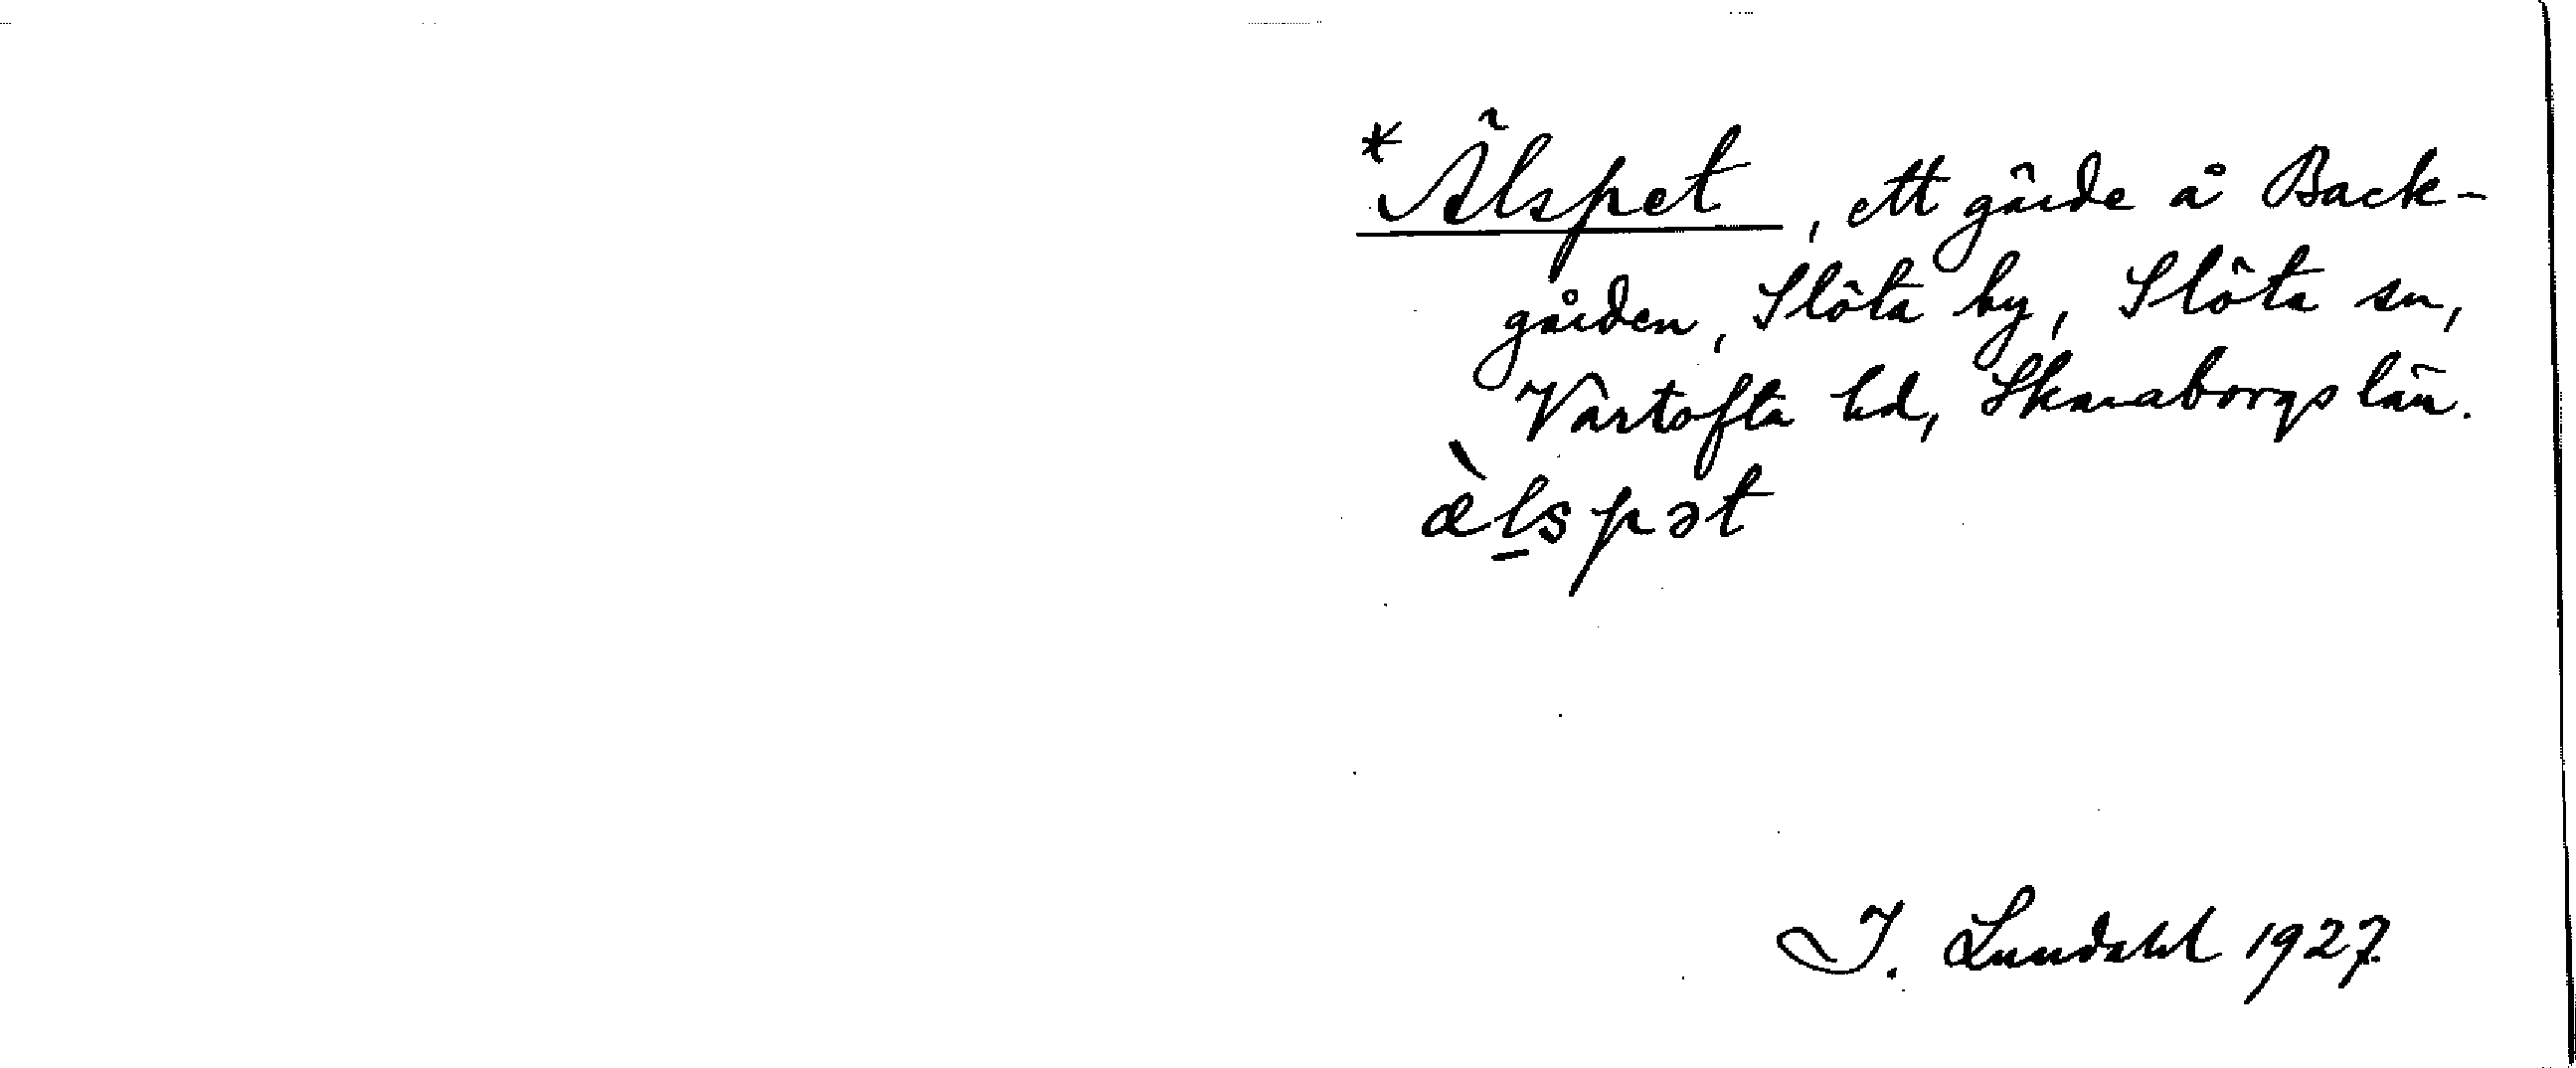 *Älspet, ett gärde å Back-
gården, Slöta by, Slöta sn,
Vartofta hd, Skaraborgs län.
æ̀l̠spət
I. Lundahl 1927.